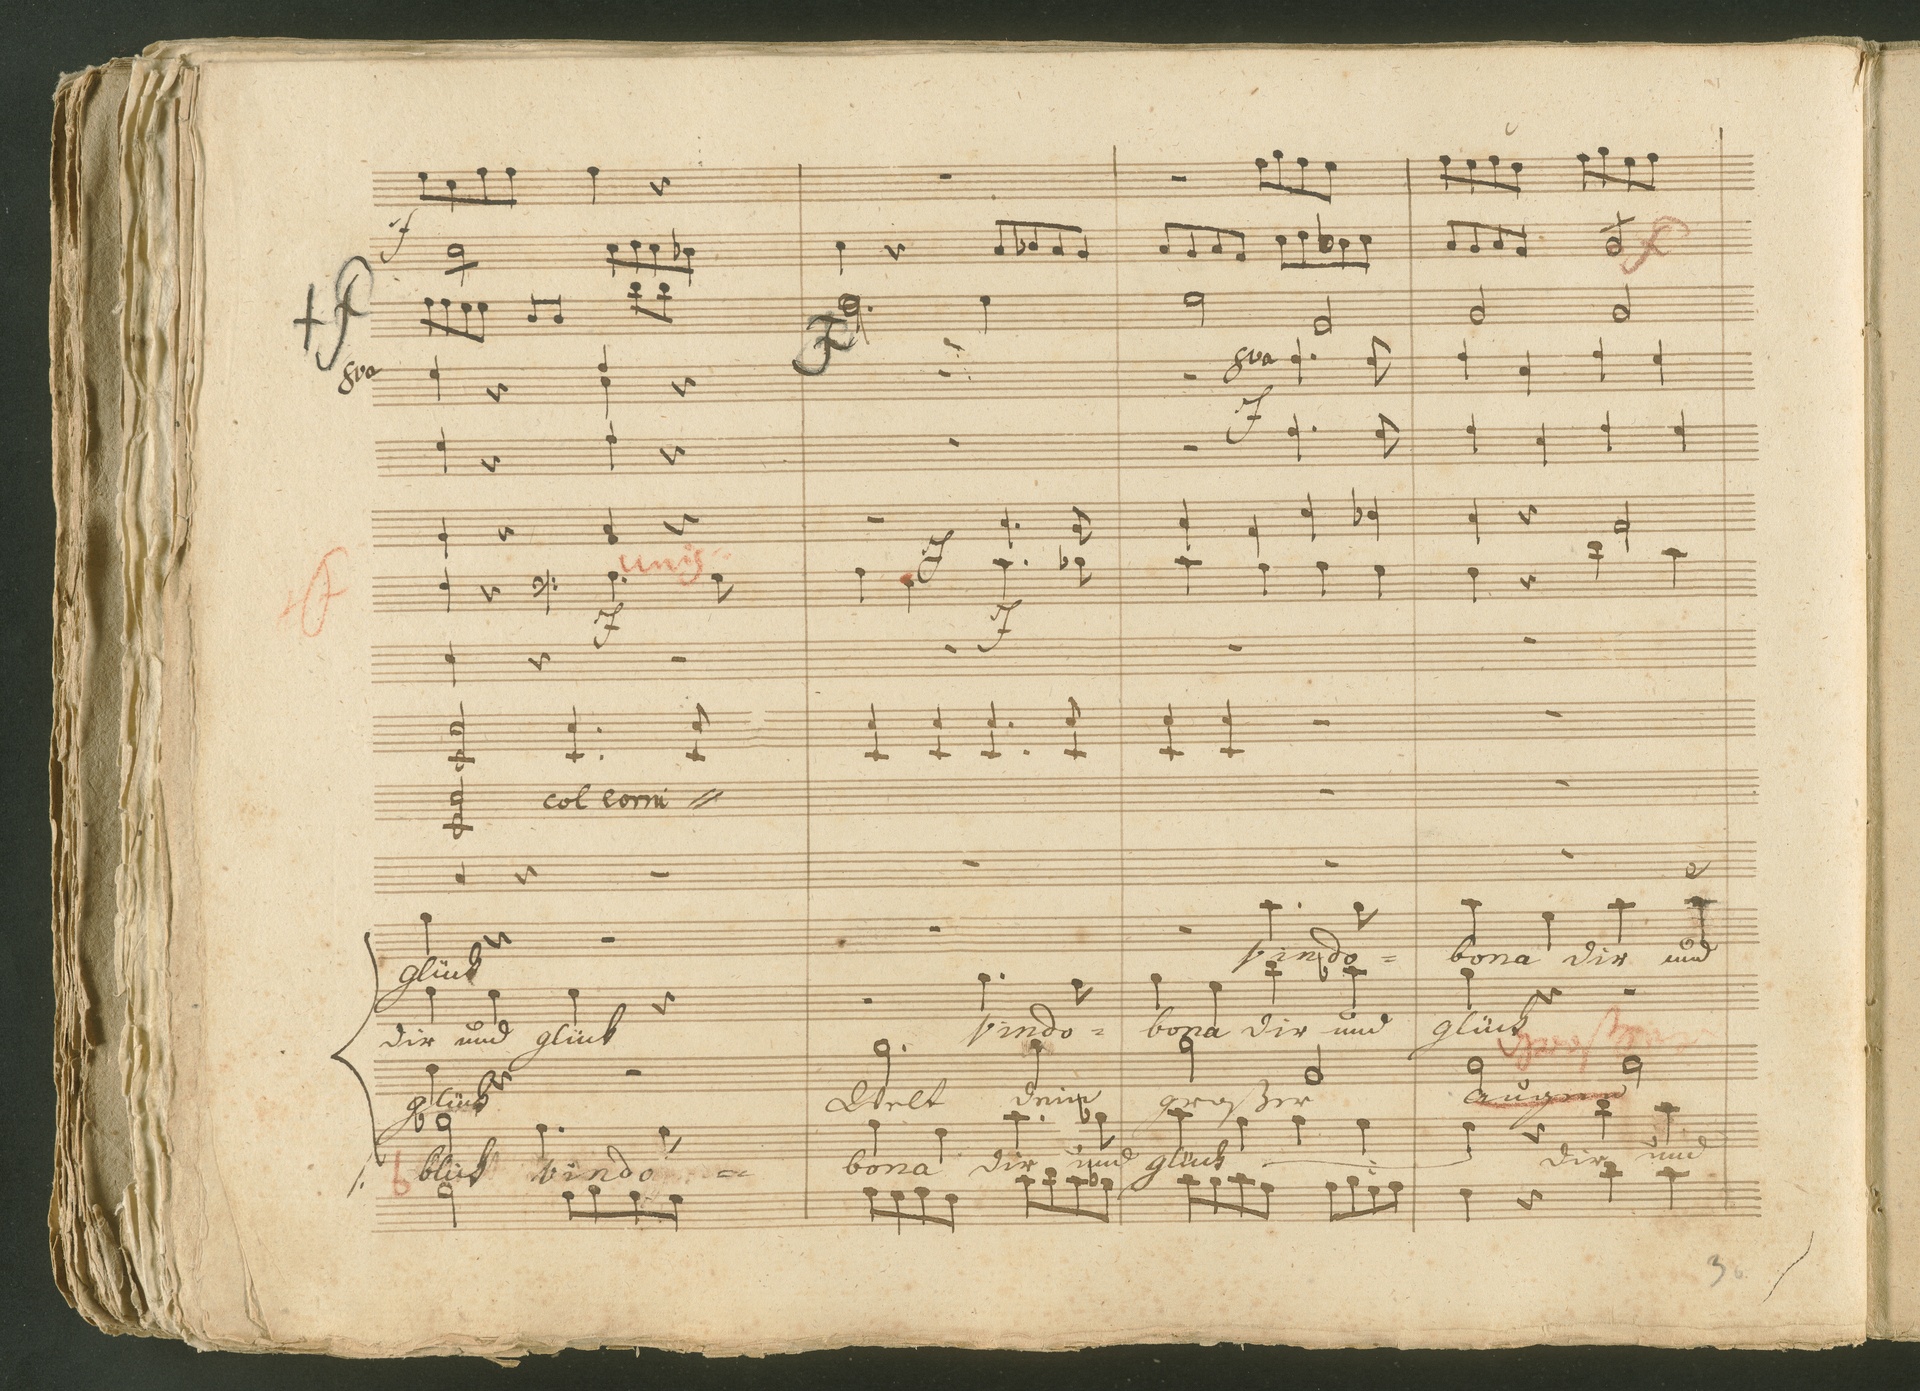 f
f
+f
f
8va
8va
f
unis
f
+f
f
f
col corni //
glück
Vindo = bona dir und
dir und glück
Vindo = bona dir und glück
glück
Welt dein großer augen
großer
blick Vindo = bona dir und glück dir und
3